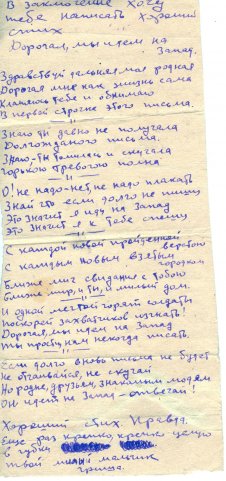 В заключение хочу
тебе написать хороший
стих
Дорогая, мы идем на
Запад.
Здравствуй дальняя моя родная
Дорогая мне как жизнь сама
Кланяюсь тебе и обнимаю
В первой строчке этого письма.
Знаю ты давно не получала
Долгожданого письма.
Знаю-ты томилась и скучала
горькою тревогою полна
О! не надо-нет не надо плакать
Знай что если долго не пишу
Это значит я иду на Запад
Это значит я к тебе спешу
С каждой новой пройденной
верстою
С каждым новым взятым
городком
Ближе миг свидания с тобою
Ближе мир, и ты, и милый дом.
И одной мечтой горят солдаты
поскорей захватчиков изгнать!
Дорогая, мы идем на Запад
Ты прости, нам некогда писать
Если долго вновь письма не будет
Не отчаивайся, не скучай
Но родне, друзьям, знакомым людям
Он идет на Запад - отвечай!
Хороший стих. Правда.
Еще раз крепко, крепко целую
в губки
твой милый мальчик
гриша.